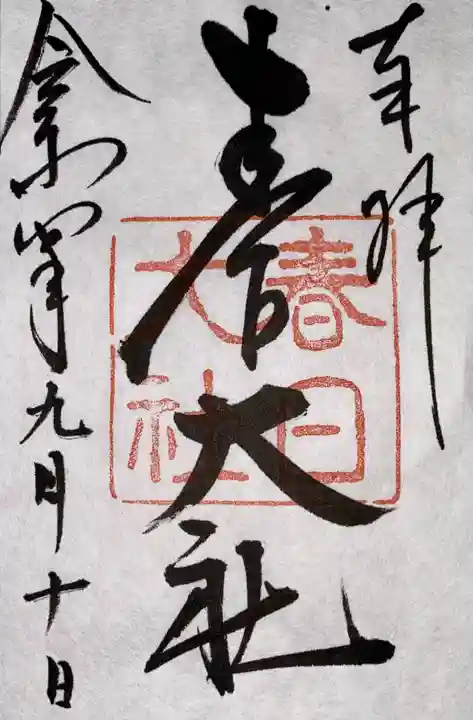 奉拝
春日大社
春日
大社
令和 年九月十日